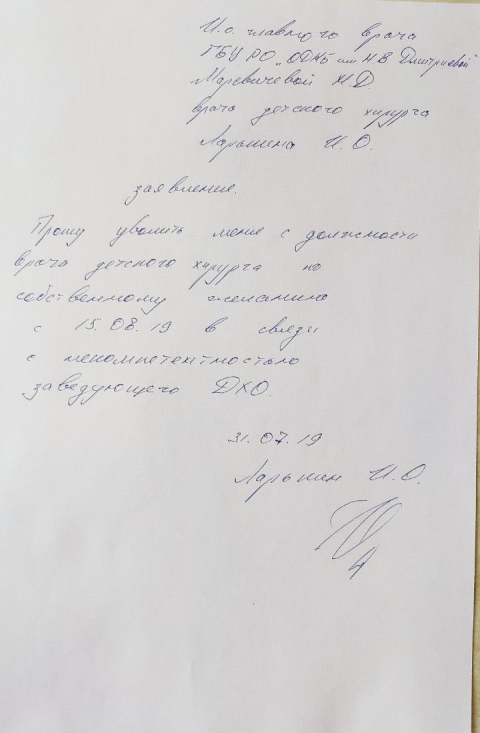 И.о. главного врача
ГБУ РО „ОДКБ им Н.В Дмитриевой"
Моревичевой Н.Д.
врача детского хирурга
Ларькина И.О.
заявление.
Прошу уволить меня с должности
врача детского хирурга по
собственному желанию
с 15.08.19 в связи
с некомпетентностью
заведующего ДХО.
31.07.19
Ларькин И.О.